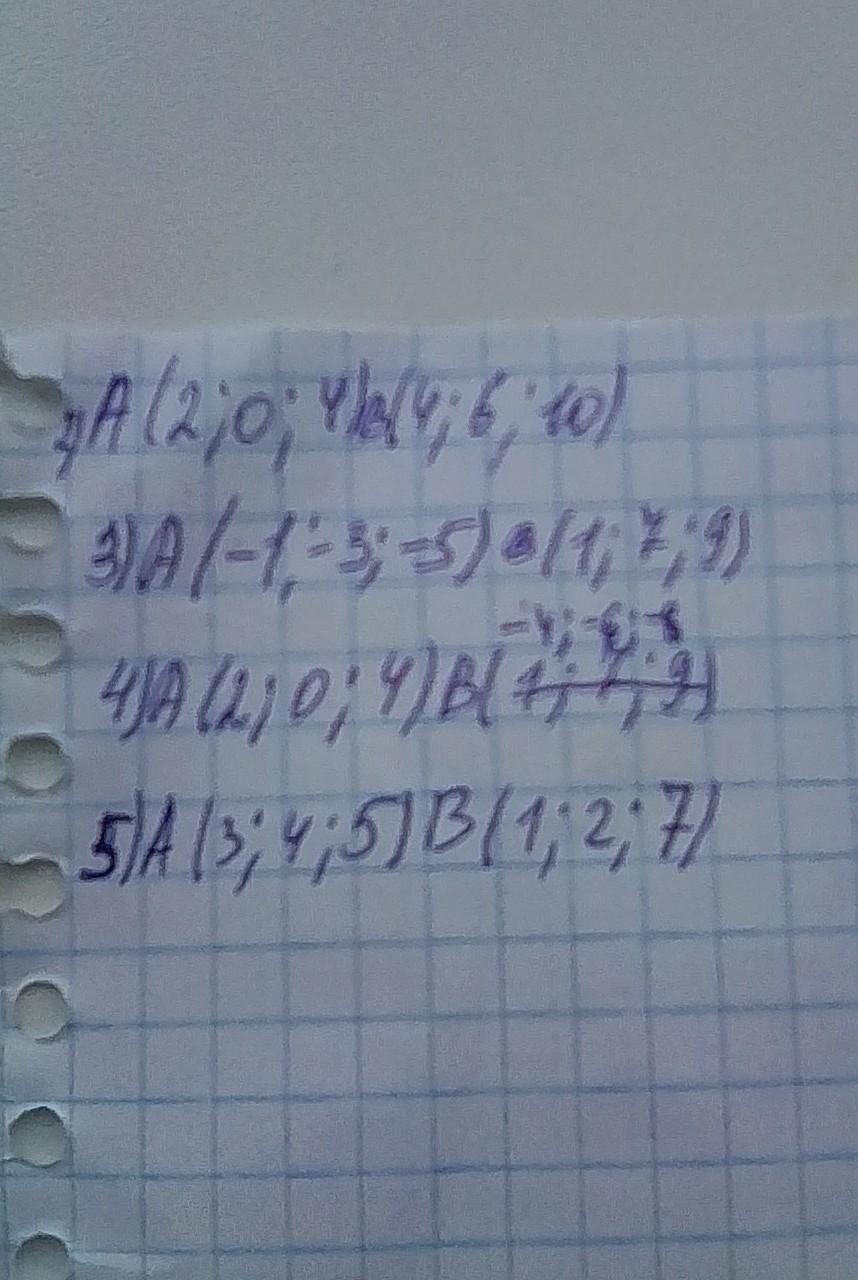 2) A(2;0;4) B(4;6;10)
3) A(-1;-3;-5) B(1;7;9)
-4;-6;-8
4) A(2;0;4) B(1;7;9)
5) A(3;4;5) B(1;2;7)